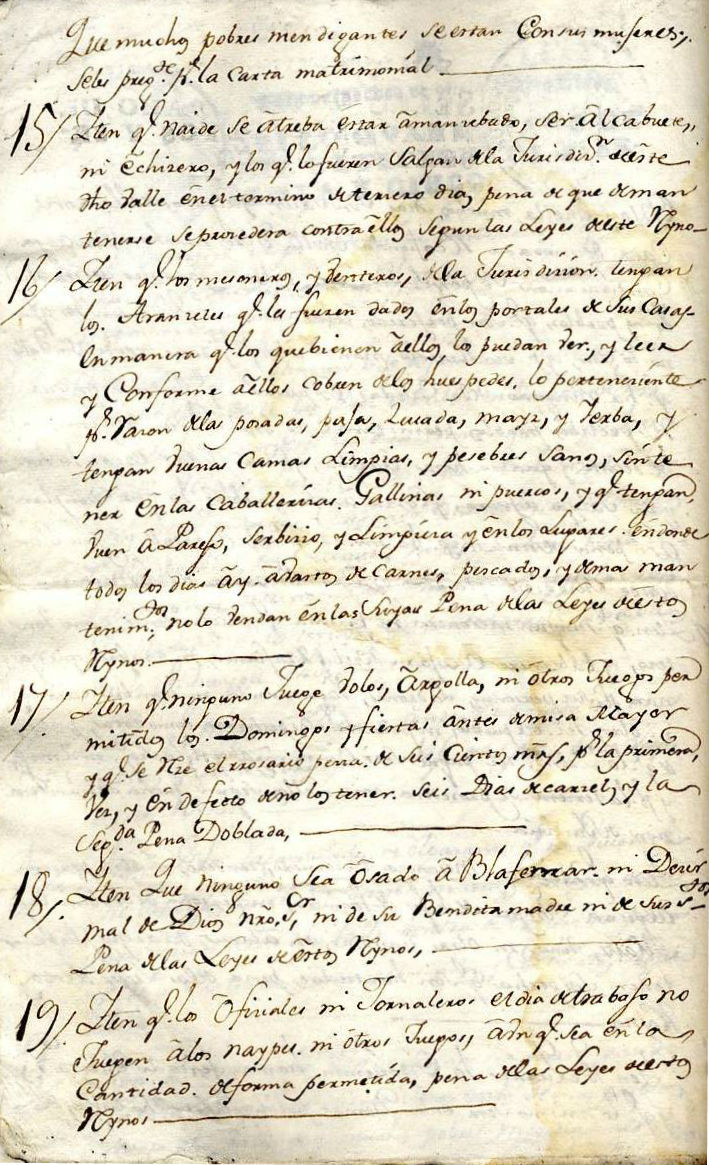 Que muchos pobres mendigantes se estan Con sus mujeres,
seles preg.te p.r la Carta matrimonial
15/ Iten q.e naide se atreba estar amanzebado, ser Alcabuete,
ni Echizero, y los q.e lo fueren Salgan de la Jurisdiz.n de este
dho Valle en el termino de terzero dia, pena de que de man
tenerse se prozedera contra ellos segun las Leyes de este Ryno
16/ Iten q.e los mesoneros, y Benteros, de la Jurisdizion tengan
los Aranzeles q.e les fueren dados en los portales de sus Casas
En manera q.e los que bienen a ellos, los puedan Ver, y leer
y Conforme a ellos cobren de los huespedes, lo perteneziente
p.r Razon de las posadas, paja, zebada, mayz, y Yerba, y
tengan buenas Camas Limpias, y pesebres sanos, sin te
ner en las Caballerizas Gallinas ni puercos, y q.e tengan
buen Aparejo, Serbizio, y Limpieza y en los Lugares en donde
todos los dias ay abastos de Carnes, pescados, y demas man
tenim.tos no lo bendan en las suyas Pena de las Leyes de estos
Rynos
17/ Iten q.e ninguno Juege bolos, Argolla, ni otros Juegos per
mitidos los Domingos y fiestas antes de misa Mayor
y q.e se Rze el rrosario pena de seis Cientos mrs, p.r la primera
Vez, y en defecto de no los tener seis Dias de carzel, y la
seg.da Pena Doblada,
18/ Iten Que ninguno sea osado a Blasfemar ni Dezir
mal de Dios nro S.r, ni de su Bendita madre ni de sus S.tos
Pena de las Leyes de estos Rynos,
19/ Iten q.e los Ofiziales ni Jornaleros el dia de trabajo no
Juegen a los naypes ni otros Juegos, aun q.e sea en la
Cantidad de forma permetida, pena de las Leyes de estos
Rynos